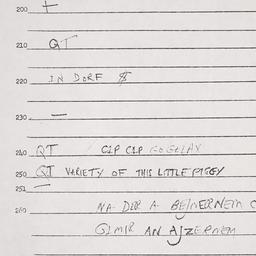 200
210 QT
220 IN DORF $
230 —
240 QT CIP CIP
250 QT VARIETY OF THIS LITTLE PIGGY
251 —
260 NA DER A
GIMIR AN AJZERNEM